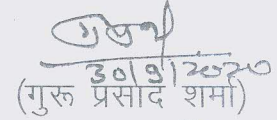 30/9/2020
(गुरू प्रसाद शर्मा)